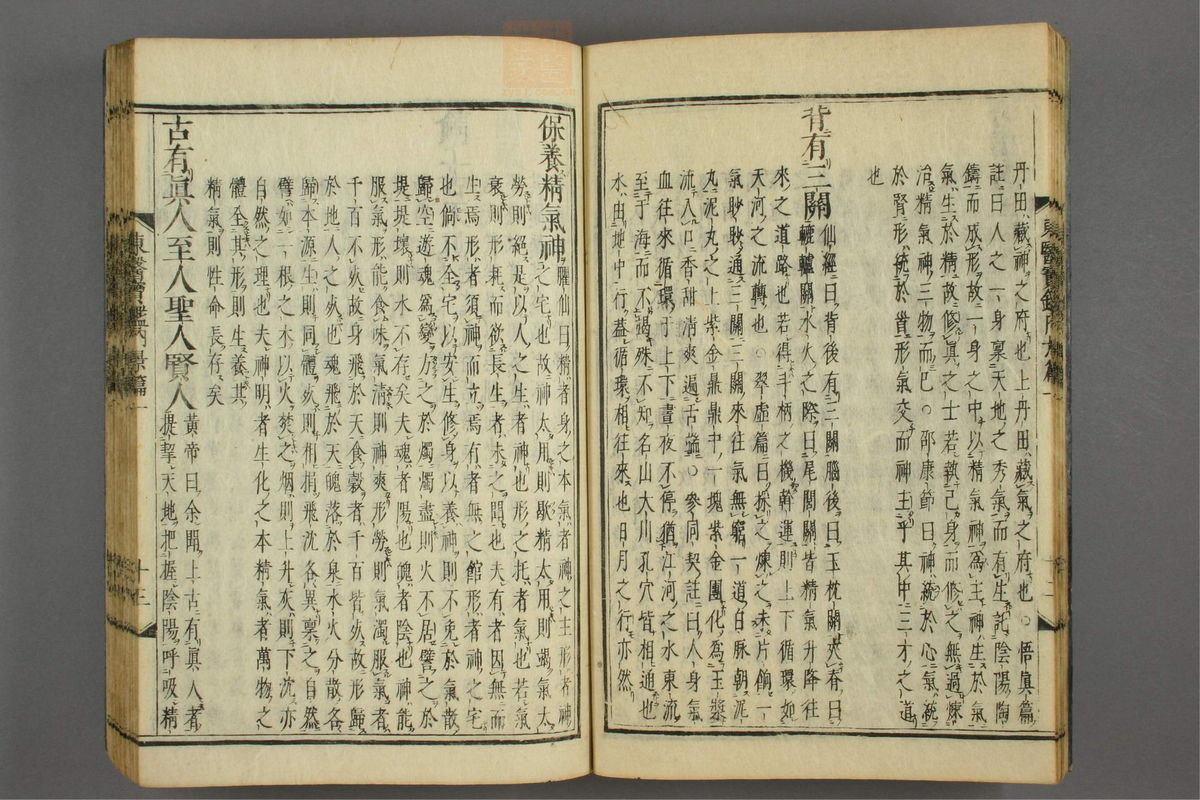 丹田藏神之府也上丹田藏氣之府也○悟眞篇
註曰人之一身稟天地之秀氣而有生託陰陽陶
鑄而成形故一身之中以精氣神爲主神生於氣
氣生於精故修眞之士若執己身而修之無過煉
治精氣神三物而已○邵康節曰神統於心氣統
於腎形統於首形氣交而神主乎其中三才之道
也
背有三關
仙經曰背後有三關腦後曰玉枕關夾脊曰
轆轤關水火之際曰尾閭關皆精氣升降往
來之道路也若得斗柄之機斡運則上下循環如
天河之流轉也○翠虛篇曰採之煉之未片餉一
氣眇眇通三關三關來往氣無窮一道白脈朝泥
丸泥丸之上紫金鼎鼎中一塊紫金團化爲玉漿
流入口香甜淸爽遍舌端○參同契註曰人身氣
血往來循環于上下晝夜不停猶江河之水東流
至于海而不竭殊不知名山大川孔穴皆相通也
水由地中行葢循環相往來也日月之行亦然
保養精氣神
臞仙曰精者身之本氣者神之主形者神
之宅也故神太用則歇精太用則竭氣太
勞則絕是以人之生者神也形之托者氣也若氣
衰則形耗而欲長生者未之聞也夫有者因無而
生焉形者須神而立焉有者無之館形者神之宅
也倘不全宅以安生修身以養神則不免於氣散
歸空遊魂爲變方之於燭燭盡則火不居譬之於
堤堤壞則水不存矣夫魂者陽也魄者陰也神能
服氣形能食味氣淸則神爽形勞則氣濁服氣者
千百不死故身飛於天食穀者千百皆死故形歸
於地人之死也魂飛於天魄落於泉水火分散各
歸本源生則同體死則相捐飛沈各異稟之自然
譬如一根之木以火焚之烟則上升灰則下沈亦
自然之理也夫神明者生化之本精氣者萬物之
體全其形則生養其
精氣則性命長存矣
古有眞人至人聖人賢人
黃帝曰余聞上古有眞人者
提挈天地把握陰陽呼吸精
東醫寶鑑內景篇一
十三